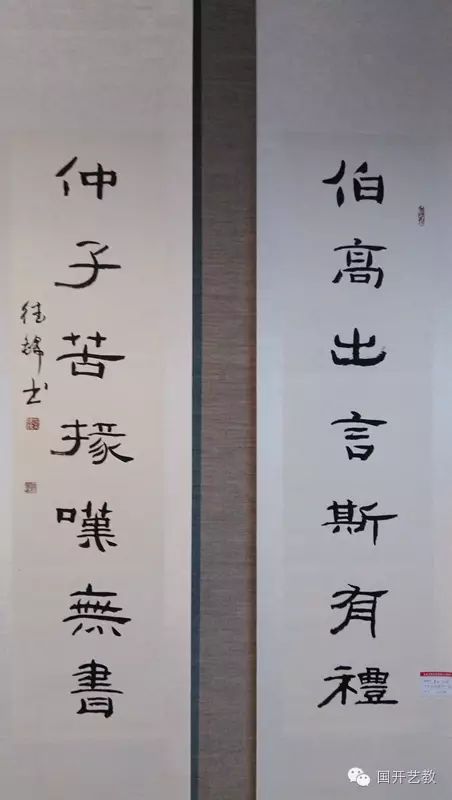 伯高出言斯有禮
仲子苦掾嘆無書
国开艺教